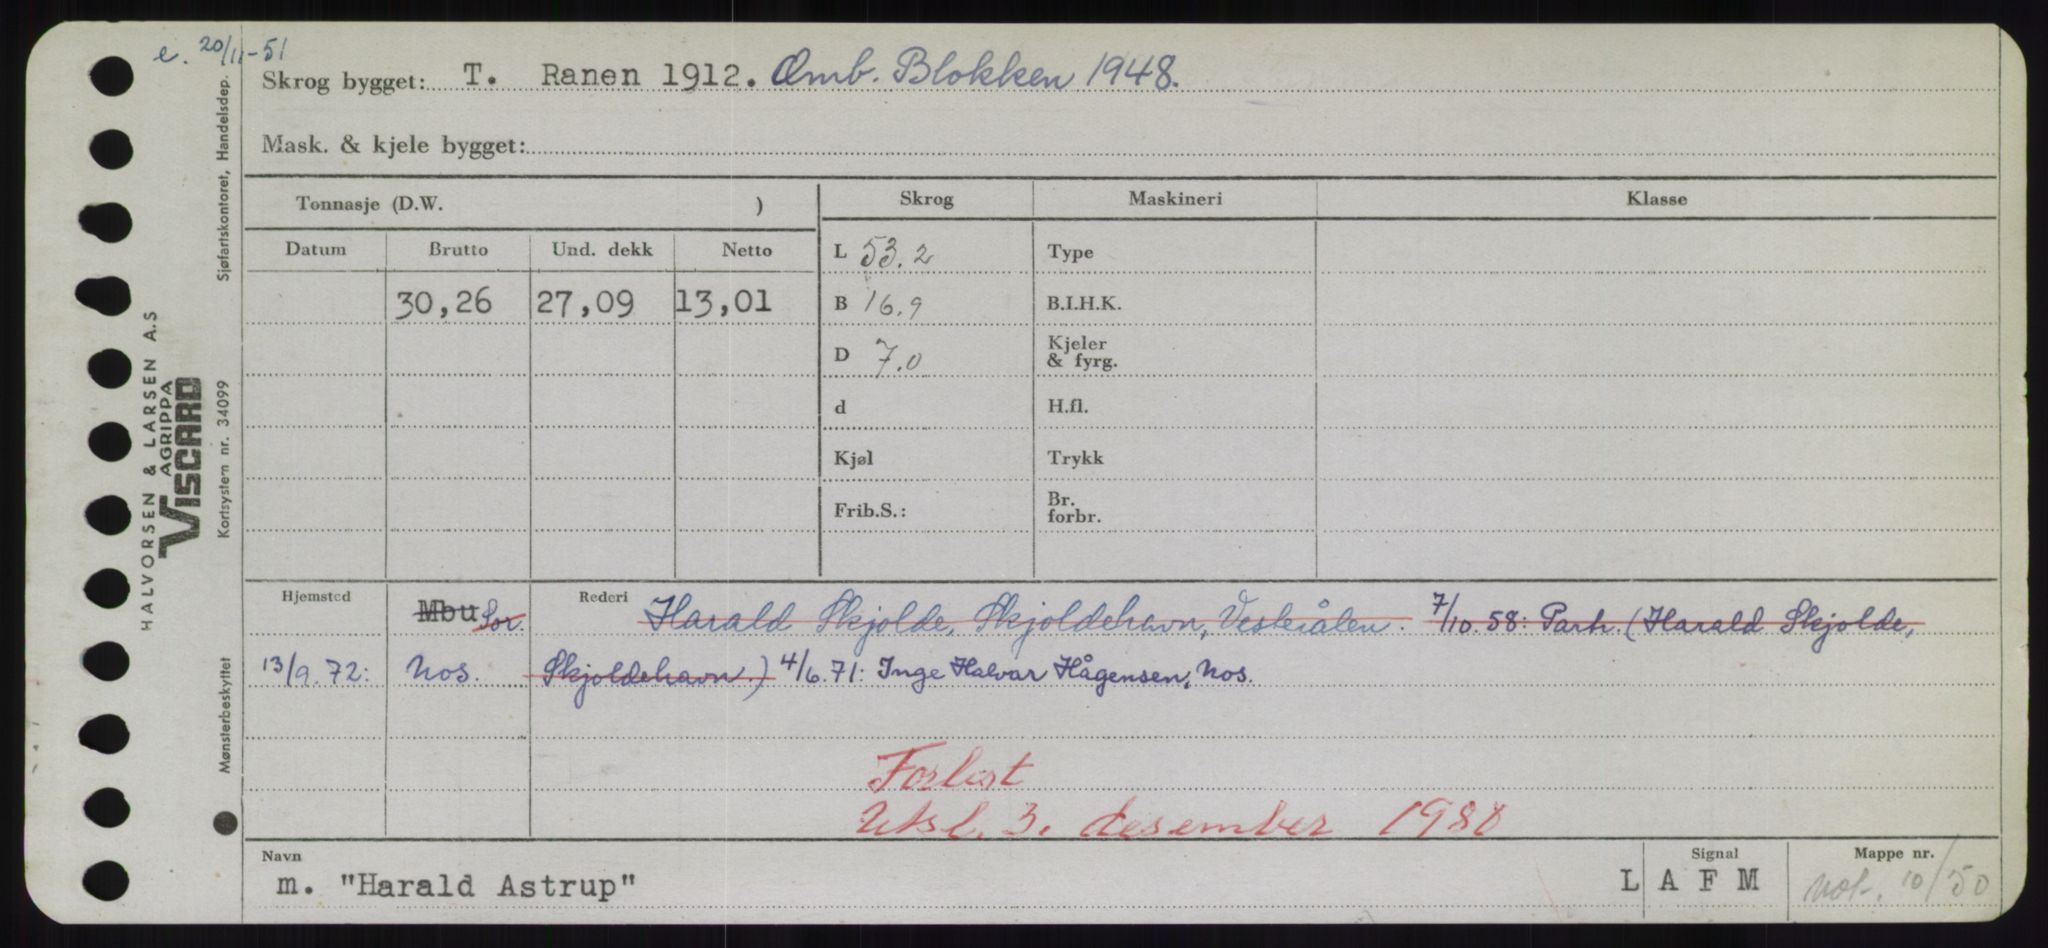 e. 20/11-51
Skrog bygget: T. Ranen 1912. Omb. Blokken 1948.
Mask. & kjele bygget:
Tonnasje (D.W. )
Skrog Maskineri Klasse
Datum Brutto Und. dekk Netto
L 53.2 Type
30,26 27,09 13,01
B 16.9 B.I.H.K.
D 7.0 Kjeler & fyrg.
d H.fl.
Kjøl Trykk
Frib.S.: Br. forbr.
Hjemsted Mbu Sor. Rederi Harald Skjolde, Skjoldehavn, Vesterålen. 7/10.58: Partr. (Harald Skjolde,
13/9.72: Nos. Skjoldehavn.) 4/6.71: Inge Halvar Hågensen, Nos.
Forlist
Utsl. 3. desember 1980
Navn Signal Mappe nr.
m. "Harald Astrup" L A F M Not. 10/50
HALVORSEN & LARSEN A.S
AGRIPPA
VISCARD
Mønsterbeskyttet Kortsystem nr. 34099 Sjøfartskontoret, Handelsdep.